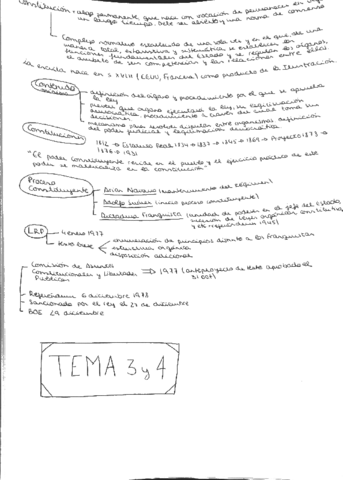 Constitución → ley permanente que nace con vocación de permanecer en vigor
un largo tiempo. Debe ser abierta y una norma de consenso
Complejo normativo establecido de una sola vez y en el que, de una
manera total, exhaustiva y sistemática se establecen las
funciones fundamentales del Estado y se regulan los órganos,
el ámbito de sus competencias y las relaciones entre ellos.
La escrita nace en s XVIII (EEUU, Francia) como producto de la Ilustración.
Contenido
definición del órgano y procedimiento por el que se aprueba
la ley
prevea que órgano ejecutará la ley, su legitimación
democrática, procedimiento a través del cual toma sus
decisiones
mecanismo para resolver disputas entre organismos definición
del poder público y legitimación democrática
Constituciones
1812 → Estatuto Real 1834 → 1837 → 1845 → 1869 → Proyecto 1873 →
1876 → 1931
"El poder constituyente reside en el pueblo y el ejercicio práctico de este
poder se materializa en la constitución"
Proceso
Constituyente
Arias Navarro (mantenimiento del régimen)
Adolfo Suárez (inicio proceso constituyente)
Dictadura Franquista (unidad de poderes en el jefe del Estado,
y ley referéndum 1945)
LRP
4 enero 1977
Texto breve
enumeración de principios distinto a los franquistas
estructura orgánica
disposición adicional
Comisión de Asuntos
Constitucionales y Libertades
Públicas
⇒ 1977 (anteproyecto de texto aprobado el
31 oct)
Referéndum 6 diciembre 1978
Sancionado por el rey el 27 de diciembre
BOE 29 diciembre
TEMA 3 y 4